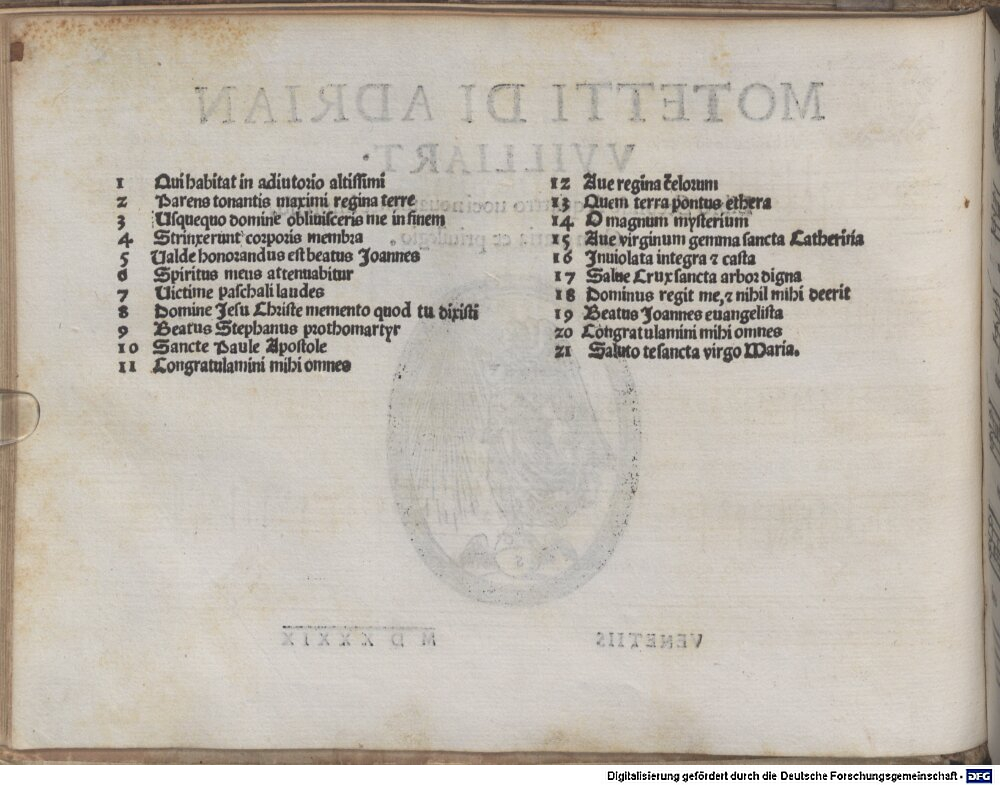 1 Qui habitat in adiutorio altissimi
2 Parens tonantis maximi regina terre
3 Usquequo domine obliuisceris me in finem
4 Strinxerunt corporis membra
5 Valde honorandus est beatus Joannes
6 Spiritus meus attenuabitur
7 Victime paschali laudes
8 Domine Jesu Christe memento quod tu dixisti
9 Beatus Stephanus prothomartyr
10 Sancte Paule Apostole
11 Congratulamini mihi omnes
12 Aue regina celorum
13 Quem terra pontus ethera
14 O magnum mysterium
15 Aue virginum gemma sancta Catherina
16 Inuiolata integra ⁊ casta
17 Salue Crux sancta arbor digna
18 Dominus regit me, ⁊ nihil mihi deerit
19 Beatus Joannes euangelista
20 Congratulamini mihi omnes
21 Saluto te sancta virgo Maria.
MOTETTI DI ADRIAN
VVILLIART
VENETIIS
M D XXXIX
Digitalisierung gefördert durch die Deutsche Forschungsgemeinschaft - DFG